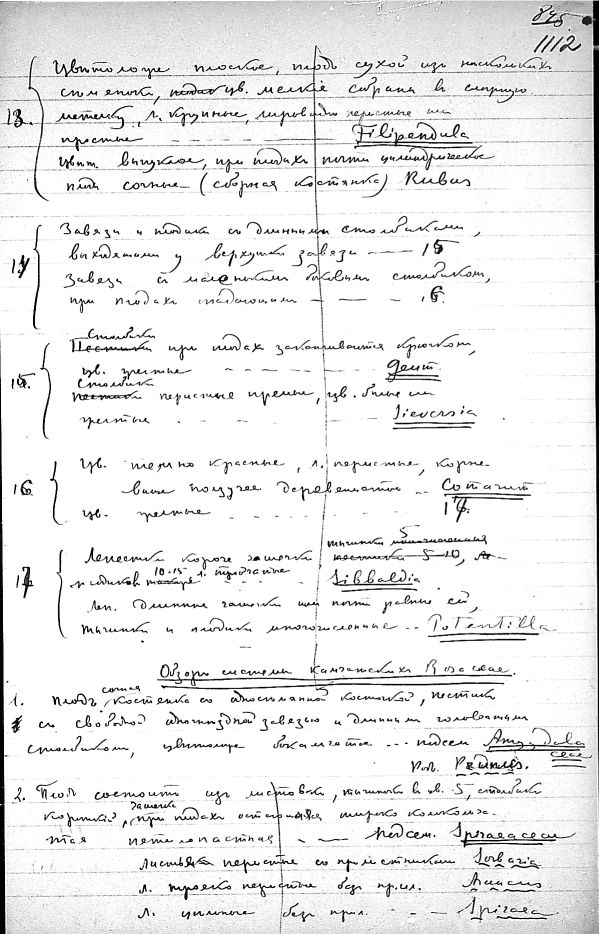 845
1112
Цвѣтоложе плоское, плодъ сухой изъ нѣсколькихъ
13. сѣмянокъ, цв. мелкіе собраны в сложную
метелку, л. крупные, лировидно перистые или
простые — — — Filipendula
Цвѣт. выпуклое, при плодахъ почти цилиндрическое
плод сочные — (сборная костянка) Rubus
14 Завязи и плодики съ длинными столбиками,
выходящими у верхушки завязи —— 15
Завязи съ маленькими боковыми столбиком,
при плодахъ опадающими — — — 16.
Столбики
15. Пестики при плодах заканчивается крючком,
цв. желтые - - - - - Geum
Столбики
пестики перистые прямые, цв. белые или
желтые - - - - Sieversia
16 Цв. темно красные, л. перистые, корне-
вище ползучее деревянистое .. Comarum
цв. желтые - - - - - 17.
17 Лепестки короче чашечки, тычинки 5
пестики 5-10,
плодиков 10-15 л. тройчатые Sibbaldia
Леп. длиннее чашечки или почти равные ей,
тычинки и плодики многочисленные .. Potentilla
Обзоръ системы камчатскихъ Rosaceae.
1. Плодъ сочная костянка со односѣмянной косточкой, пестикъ
со свободной одногнездной завязью и длинным головчатым
столбиком, цвѣтоложе бокальчатое ... подсем Amygdalaceae
Род. Prunus.
2. Плод состоит изъ листовокъ, тычинокъ в цв. 5, столбики
короткіе, чашечка при плодахъ остающаяся широко колокольча-
тая пятилопастная - —— Подсем. Spiraeaceae
Листья перистые со прилистниками Sorbaria
л. трояко перистые безъ прил. Aruncus
л. цѣльные безъ прил. - — Spiraea